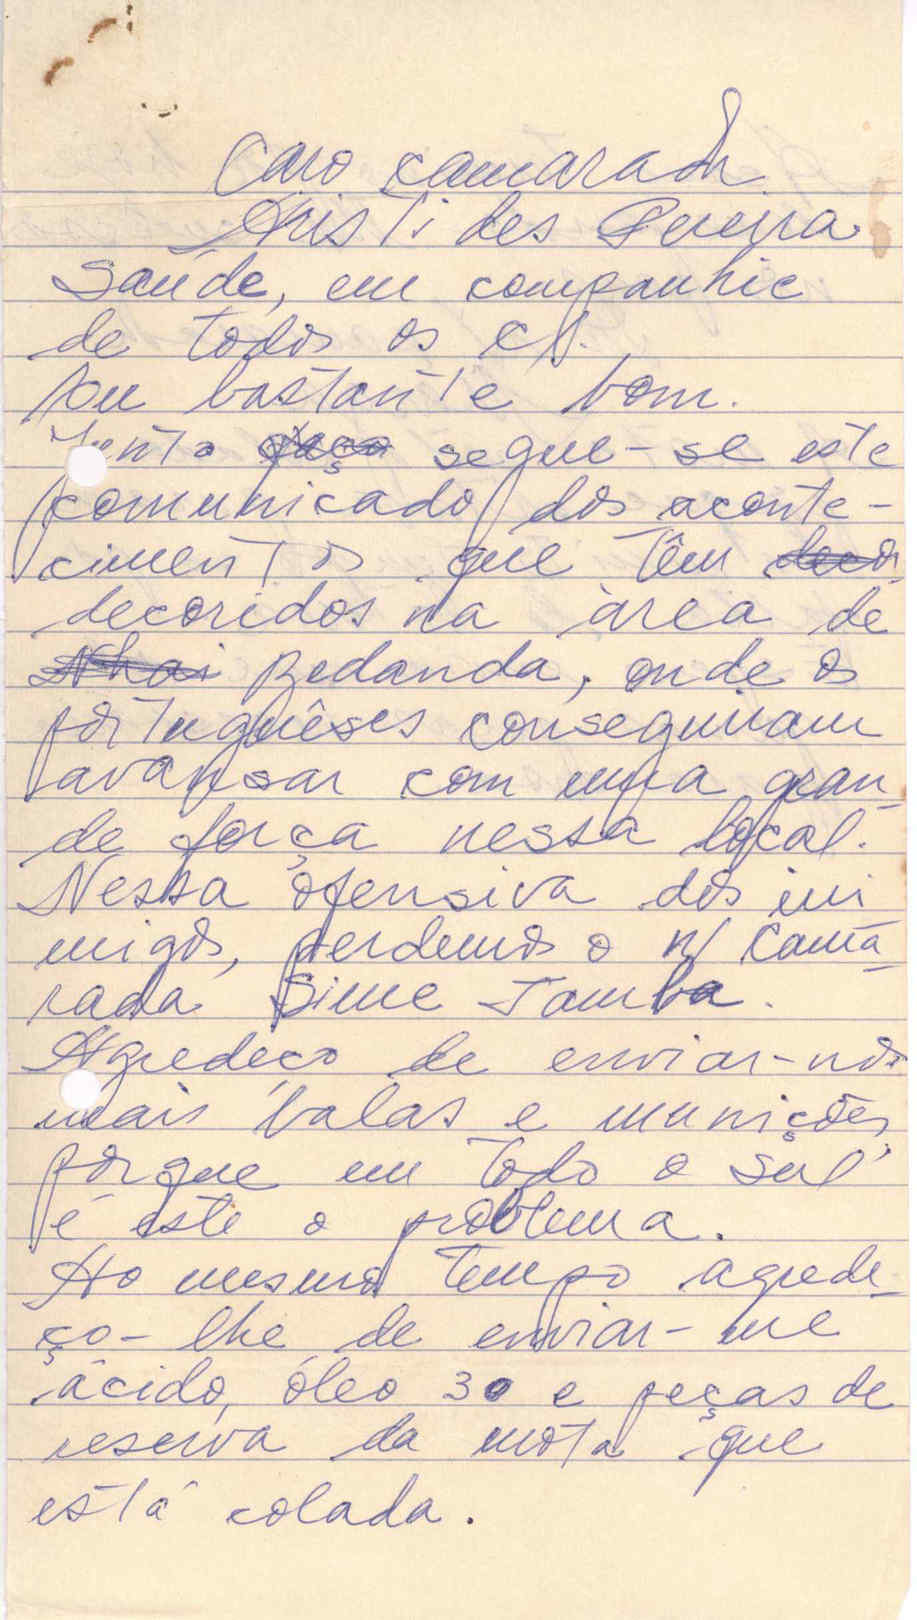 Caro camarada
Aristides Pereira
Saúde, em companhie
de todos os cds.
Sou bastante bom.
Junto peço segue-se este
comunicado dos aconte-
cimentos que têm decor
decoridos na àrea de
Nhai Bedanda, onde os
portuguêses conseguiram
avansar com uma gran-
de força nessa local.
Nessa ofensiva dos ini
migos, perdemos o n/ cama-
rada Sime Tamba.
Agredeço de enviar-nos
mais balas e munições,
porque em todo o sul
é este o problema.
Ao mesmo tempo agrede-
ço-lhe de enviar-me
ácido, óleo 30 e peças de
reserva da mota que
está colada.